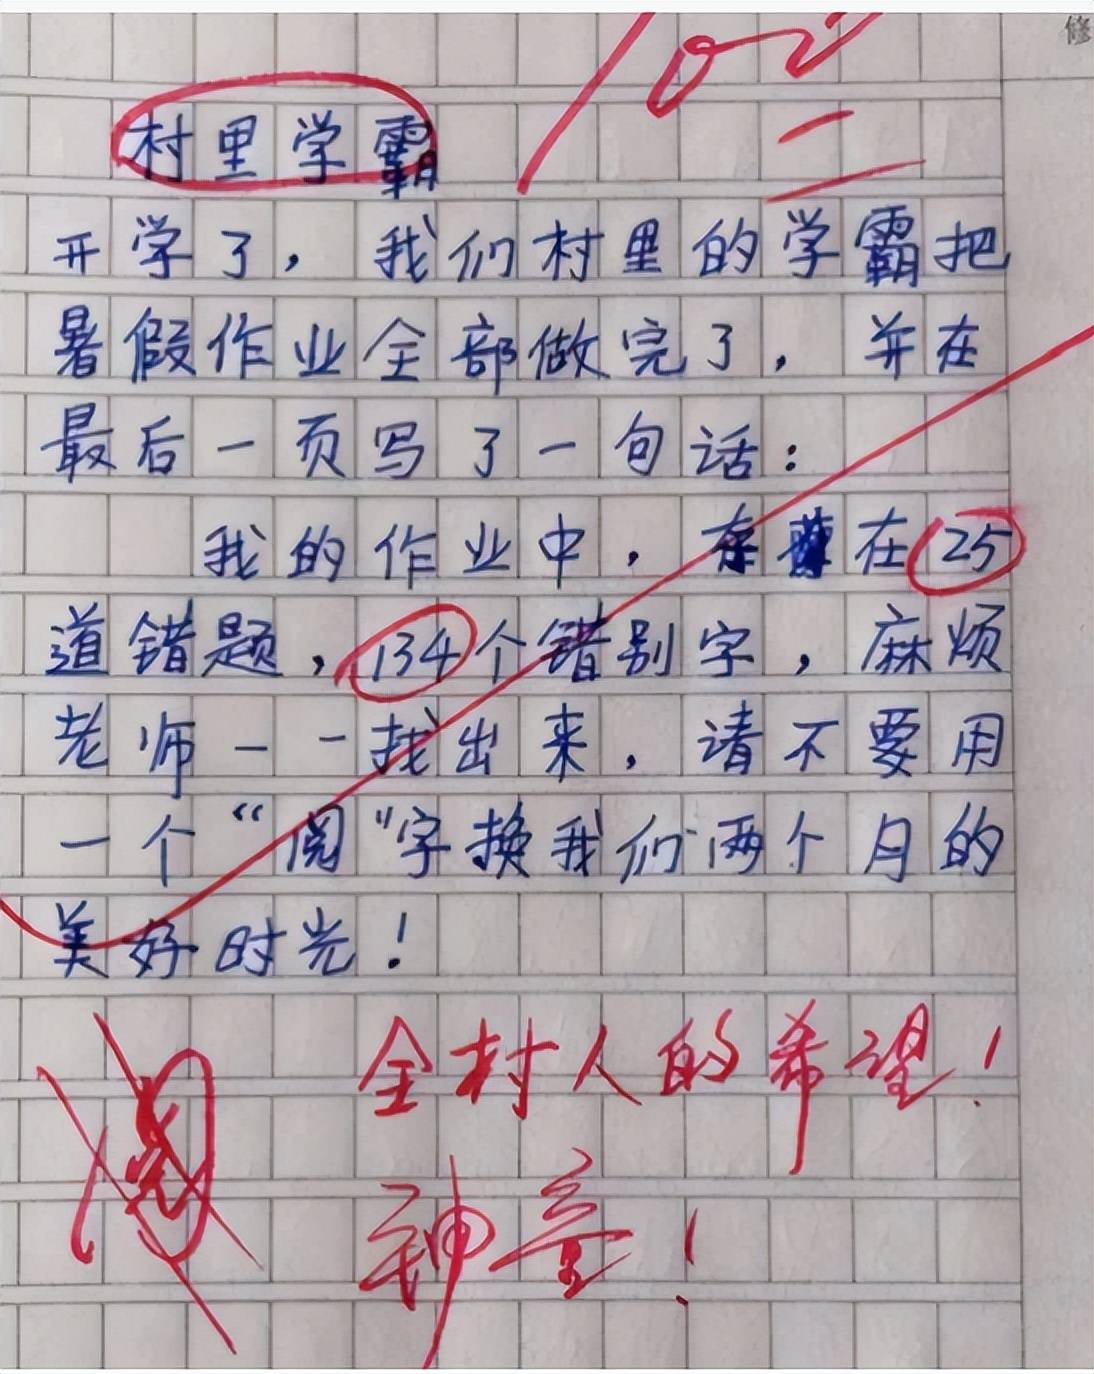 修
102
村里学霸
开学了，我们村里的学霸把
暑假作业全部做完了，并在
最后一页写了一句话：
我的作业中，存在25
道错题，134个错别字，麻烦
老师一一找出来，请不要用
一个“阅”字换我们两个月的
美好时光！
全村人的希望！
阅
神童！